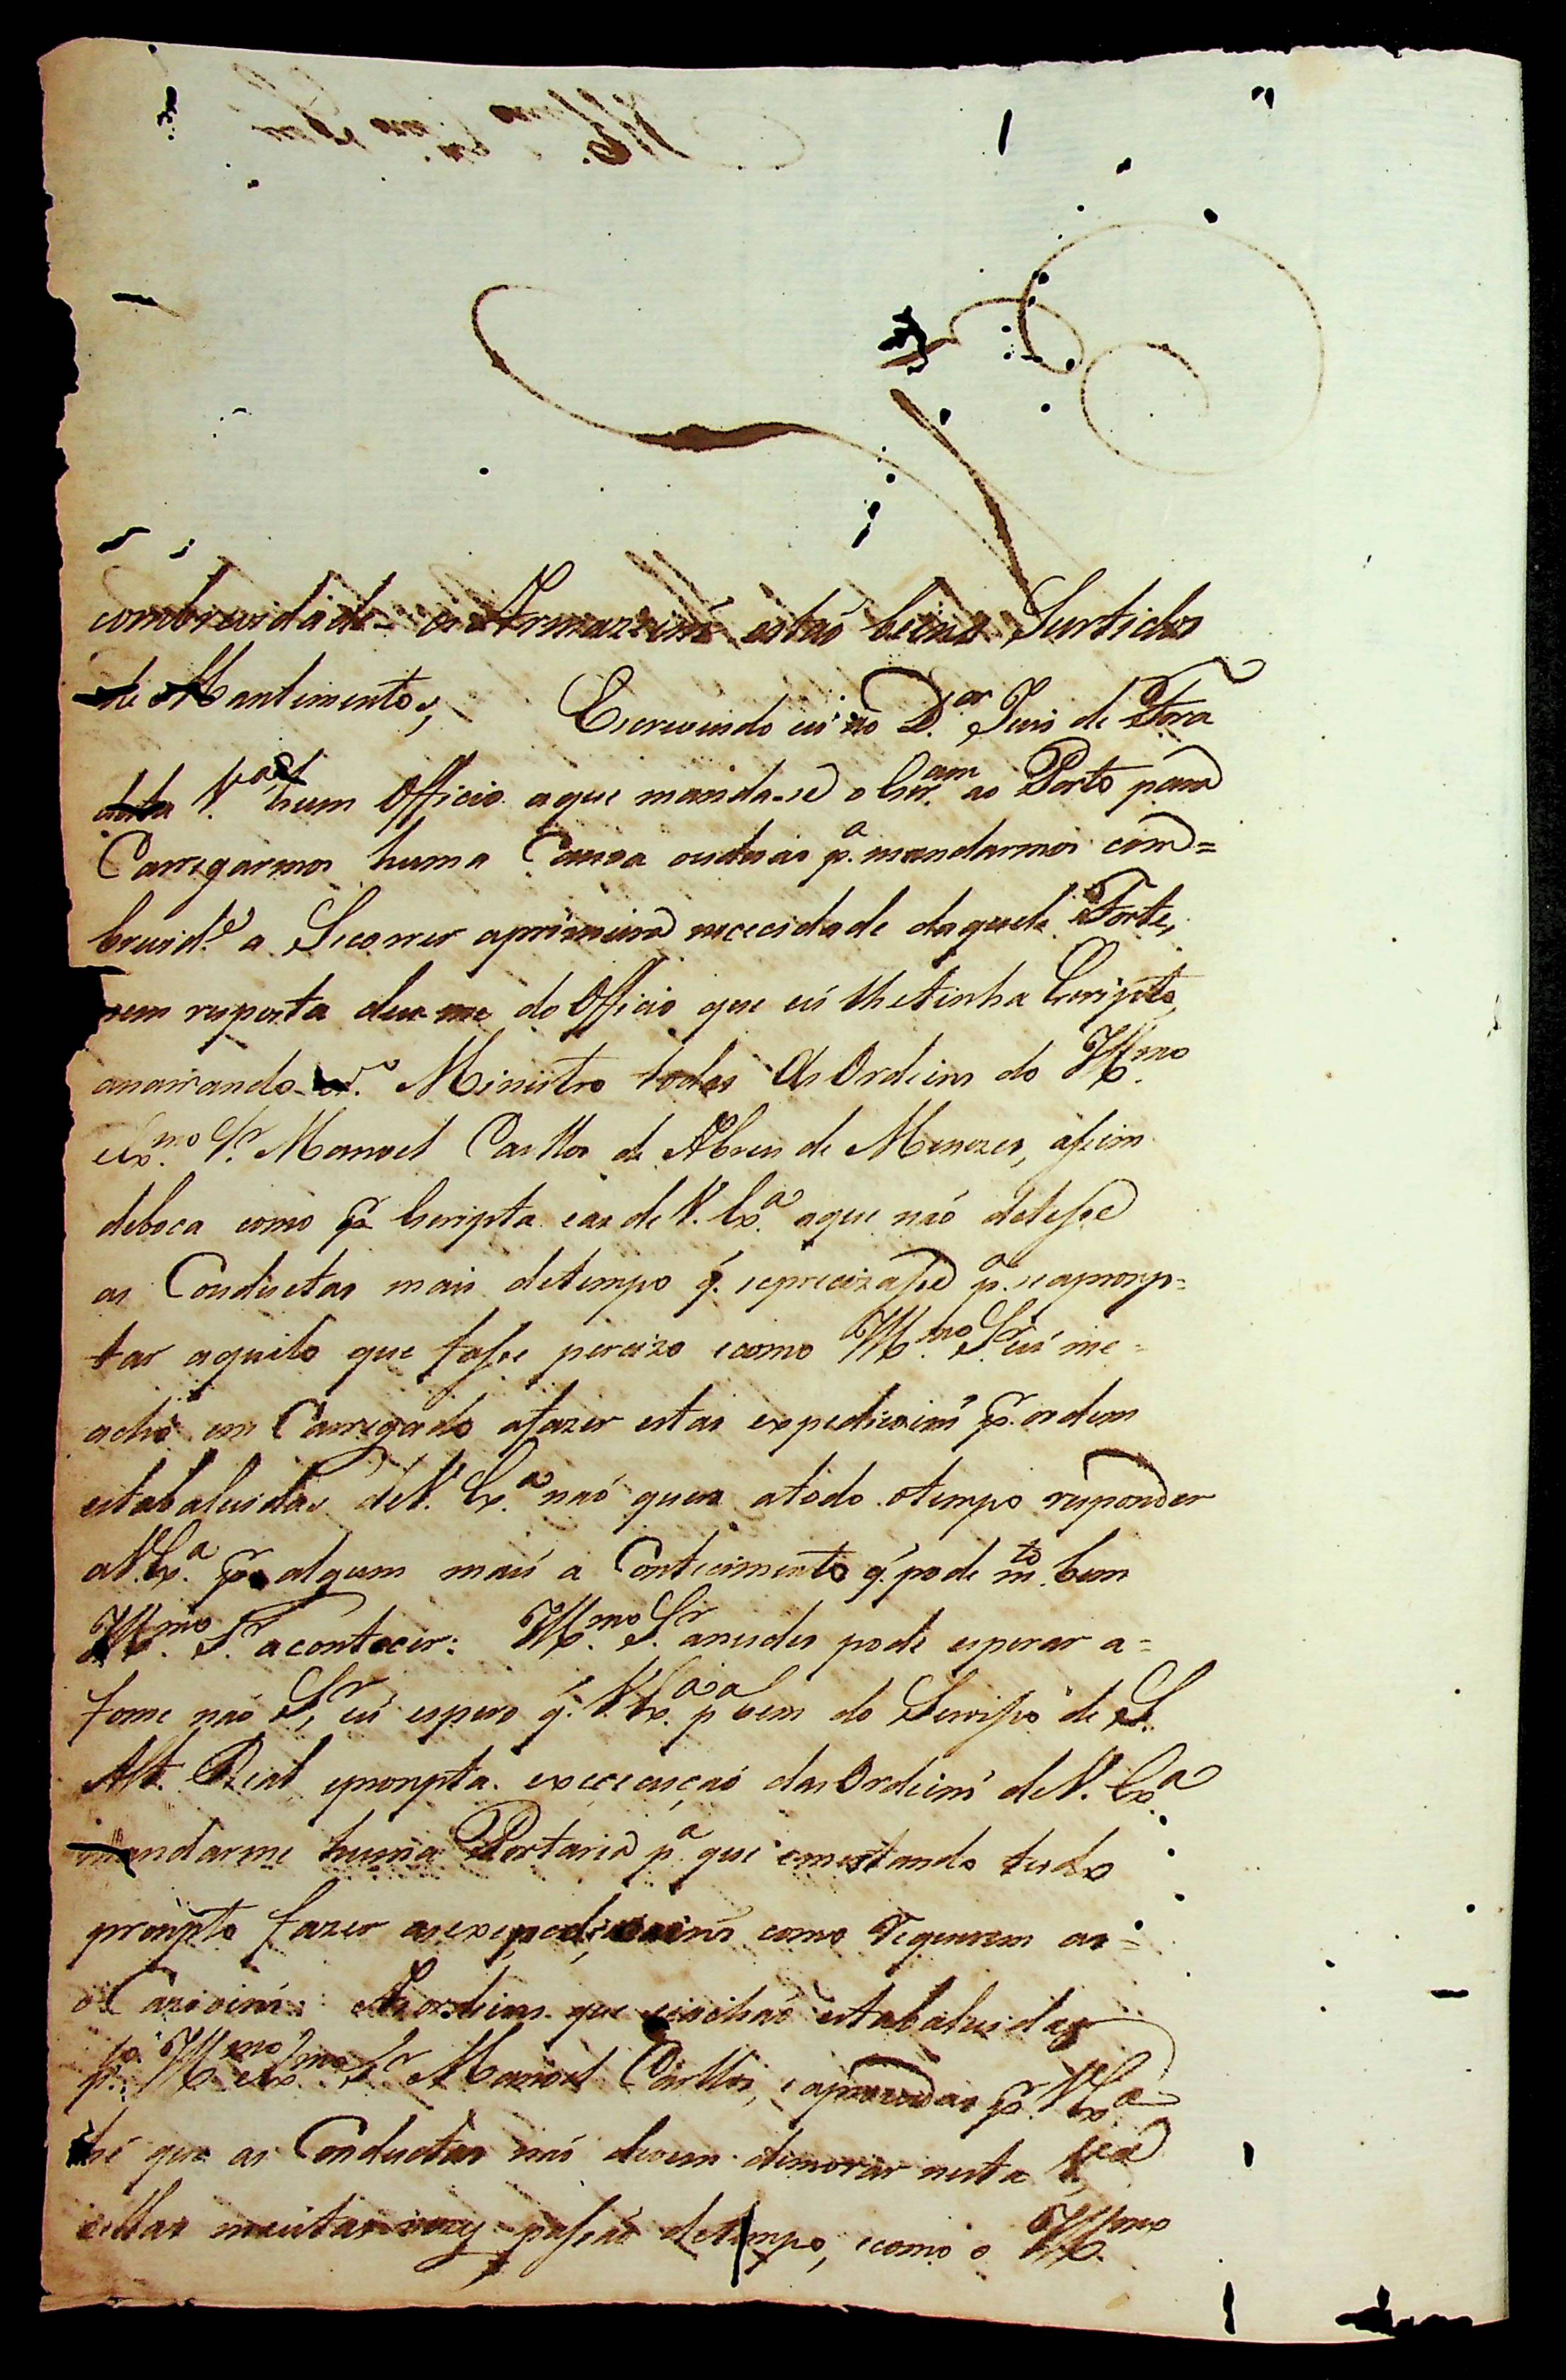 combrevidade os Armazeins estaõ beins Surtidos
de Mantimentos, Escrevendo eu ao D.or Juis de Fora
desta V.a hum Officio aque manda-se o Escr.am ao Porto para
Carregarmos huma Canoa ouduas p.a mandarmos com=
brevid.e a Secorrer aprimeira nececidade daquele Forte,
nem reposta deu me do Officio que eu lhetinha Escripto,
Ministro todas As Ordeins do Ill.mo
eEx.mo Sr. Manoel Carllos de Abreu de Menezes, assim
deboca como p.r Escripta eas de V. Ex.a aque não detesse
as Conductas mais detempo q. seprecizasse p.a seapromp=
tar aquilo que fosse percizo ecomo Ill.mo Sr. eu me
acho en Carregado afazer estas expedicoins p.r ordem
estabalecidas deV. Ex.a naó quero atodo otempo responder
aV.Ex.a p.r algum mau a Contecimento q. pode m.to bem
Ill.mo Sr. acontecer: Ill.mo Sr. pode esperar a=
fome naó Sr, eu espero q. V.Ex.a p.a bem do Servisso de S.
Alt. Real epronpta execucaçaó das Ordeins deV. Ex.a
mandarme huma Portaria p.a que emestando tudo
pronpto fazer asexepedicoins como requerem as=
o Cazioins: As ordeins que seachaó estabalecidas
p.lo Ill.mo eEx.mo Sr. Manoel Carllos, eaprovadas p.r V.Ex.a
hé que as Conductas naó devem demorar nesta V.a
eellas muitas vezes passaó detempo, ecomo o Ill.mo